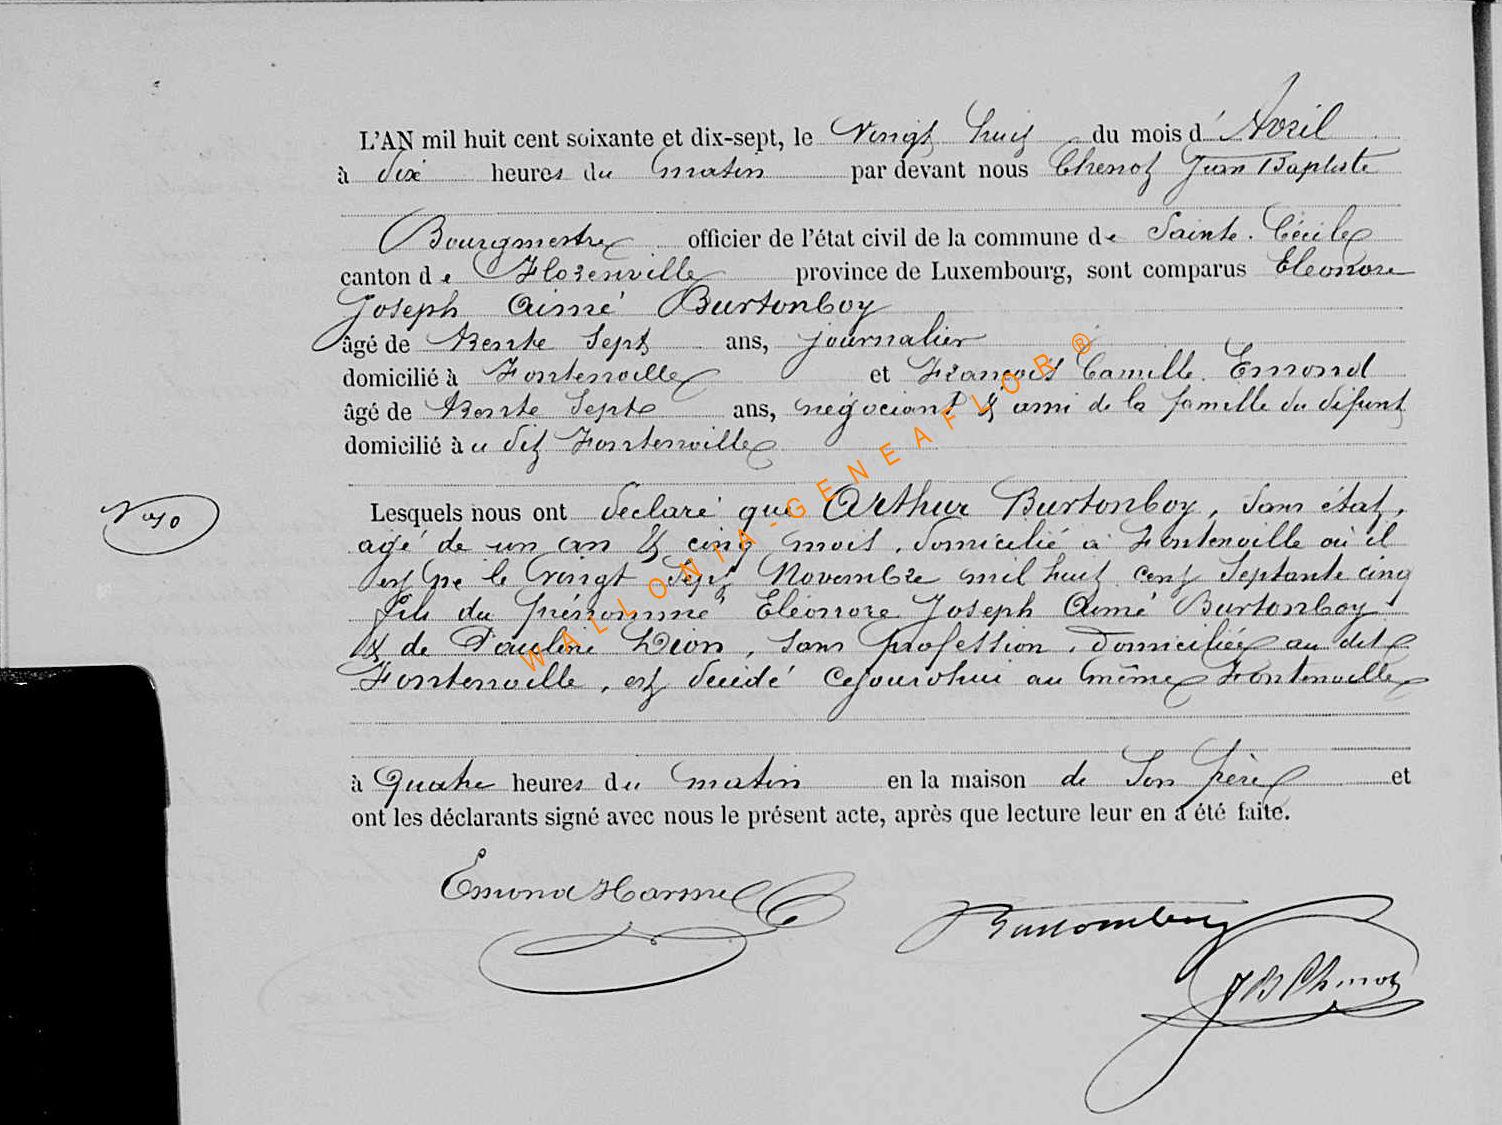 L'AN mil huit cent soixante et dix-sept, le Vingt huit du mois d'Avril
à dix heures du matin par devant nous Chenot Jean Baptiste
Bourgmestre officier de l'état civil de la commune de Sainte-Cécile
canton de Florenville province de Luxembourg, sont comparus Eléonore
Joseph Aimé Burtonboy
âgé de trente sept ans, journalier
domicilié à Fontenoille et François Camille Emond
âgé de trente sept ans, négociant & ami de la famille du défunt
domicilié à u dit Fontenoille
No 10
Lesquels nous ont déclaré que Arthur Burtonboy, sans état,
agé de un an & cinq mois, domicilié à Fontenoille où il
est né le vingt sept Novembre mil huit cent septante cinq
fils du prénommé Eléonore Joseph Aimé Burtonboy
& de Pauline Dion, sans profession, domiciliée au dit
Fontenoille, est décédé cejourdhui au même Fontenoille
à quatre heures du matin en la maison de son père et
ont les déclarants signé avec nous le présent acte, après que lecture leur en a été faite.
Emond Harmel
Burtomboy
JB Chenot
WALLONIA-GENEAFLOR ®